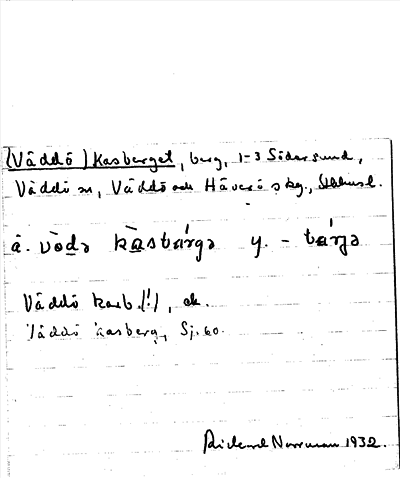 (Väddö) Kasberget, berg, 1-3 Södersund,
Väddö sn, Väddö och Häverö skg.,
å. vö̀dǝ kàsbárgǝ y. -
Väddö kasb. (!), ek.
Väddö kasberg, Sj. 60.
Rickard Norrman 1932.